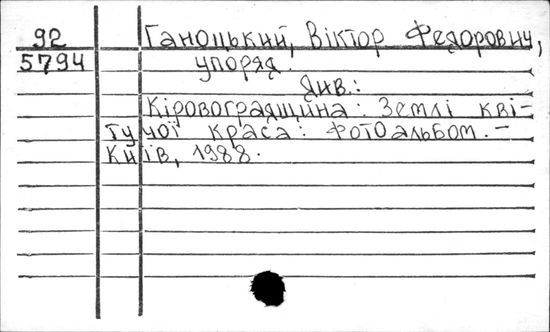 92 Ганоцький, Віктор Федорович,
5794 упоряд.
Див.:
Кіровоградщина: Землі кві-
тучої краса: Фотоальбом. –
Київ, 1988.